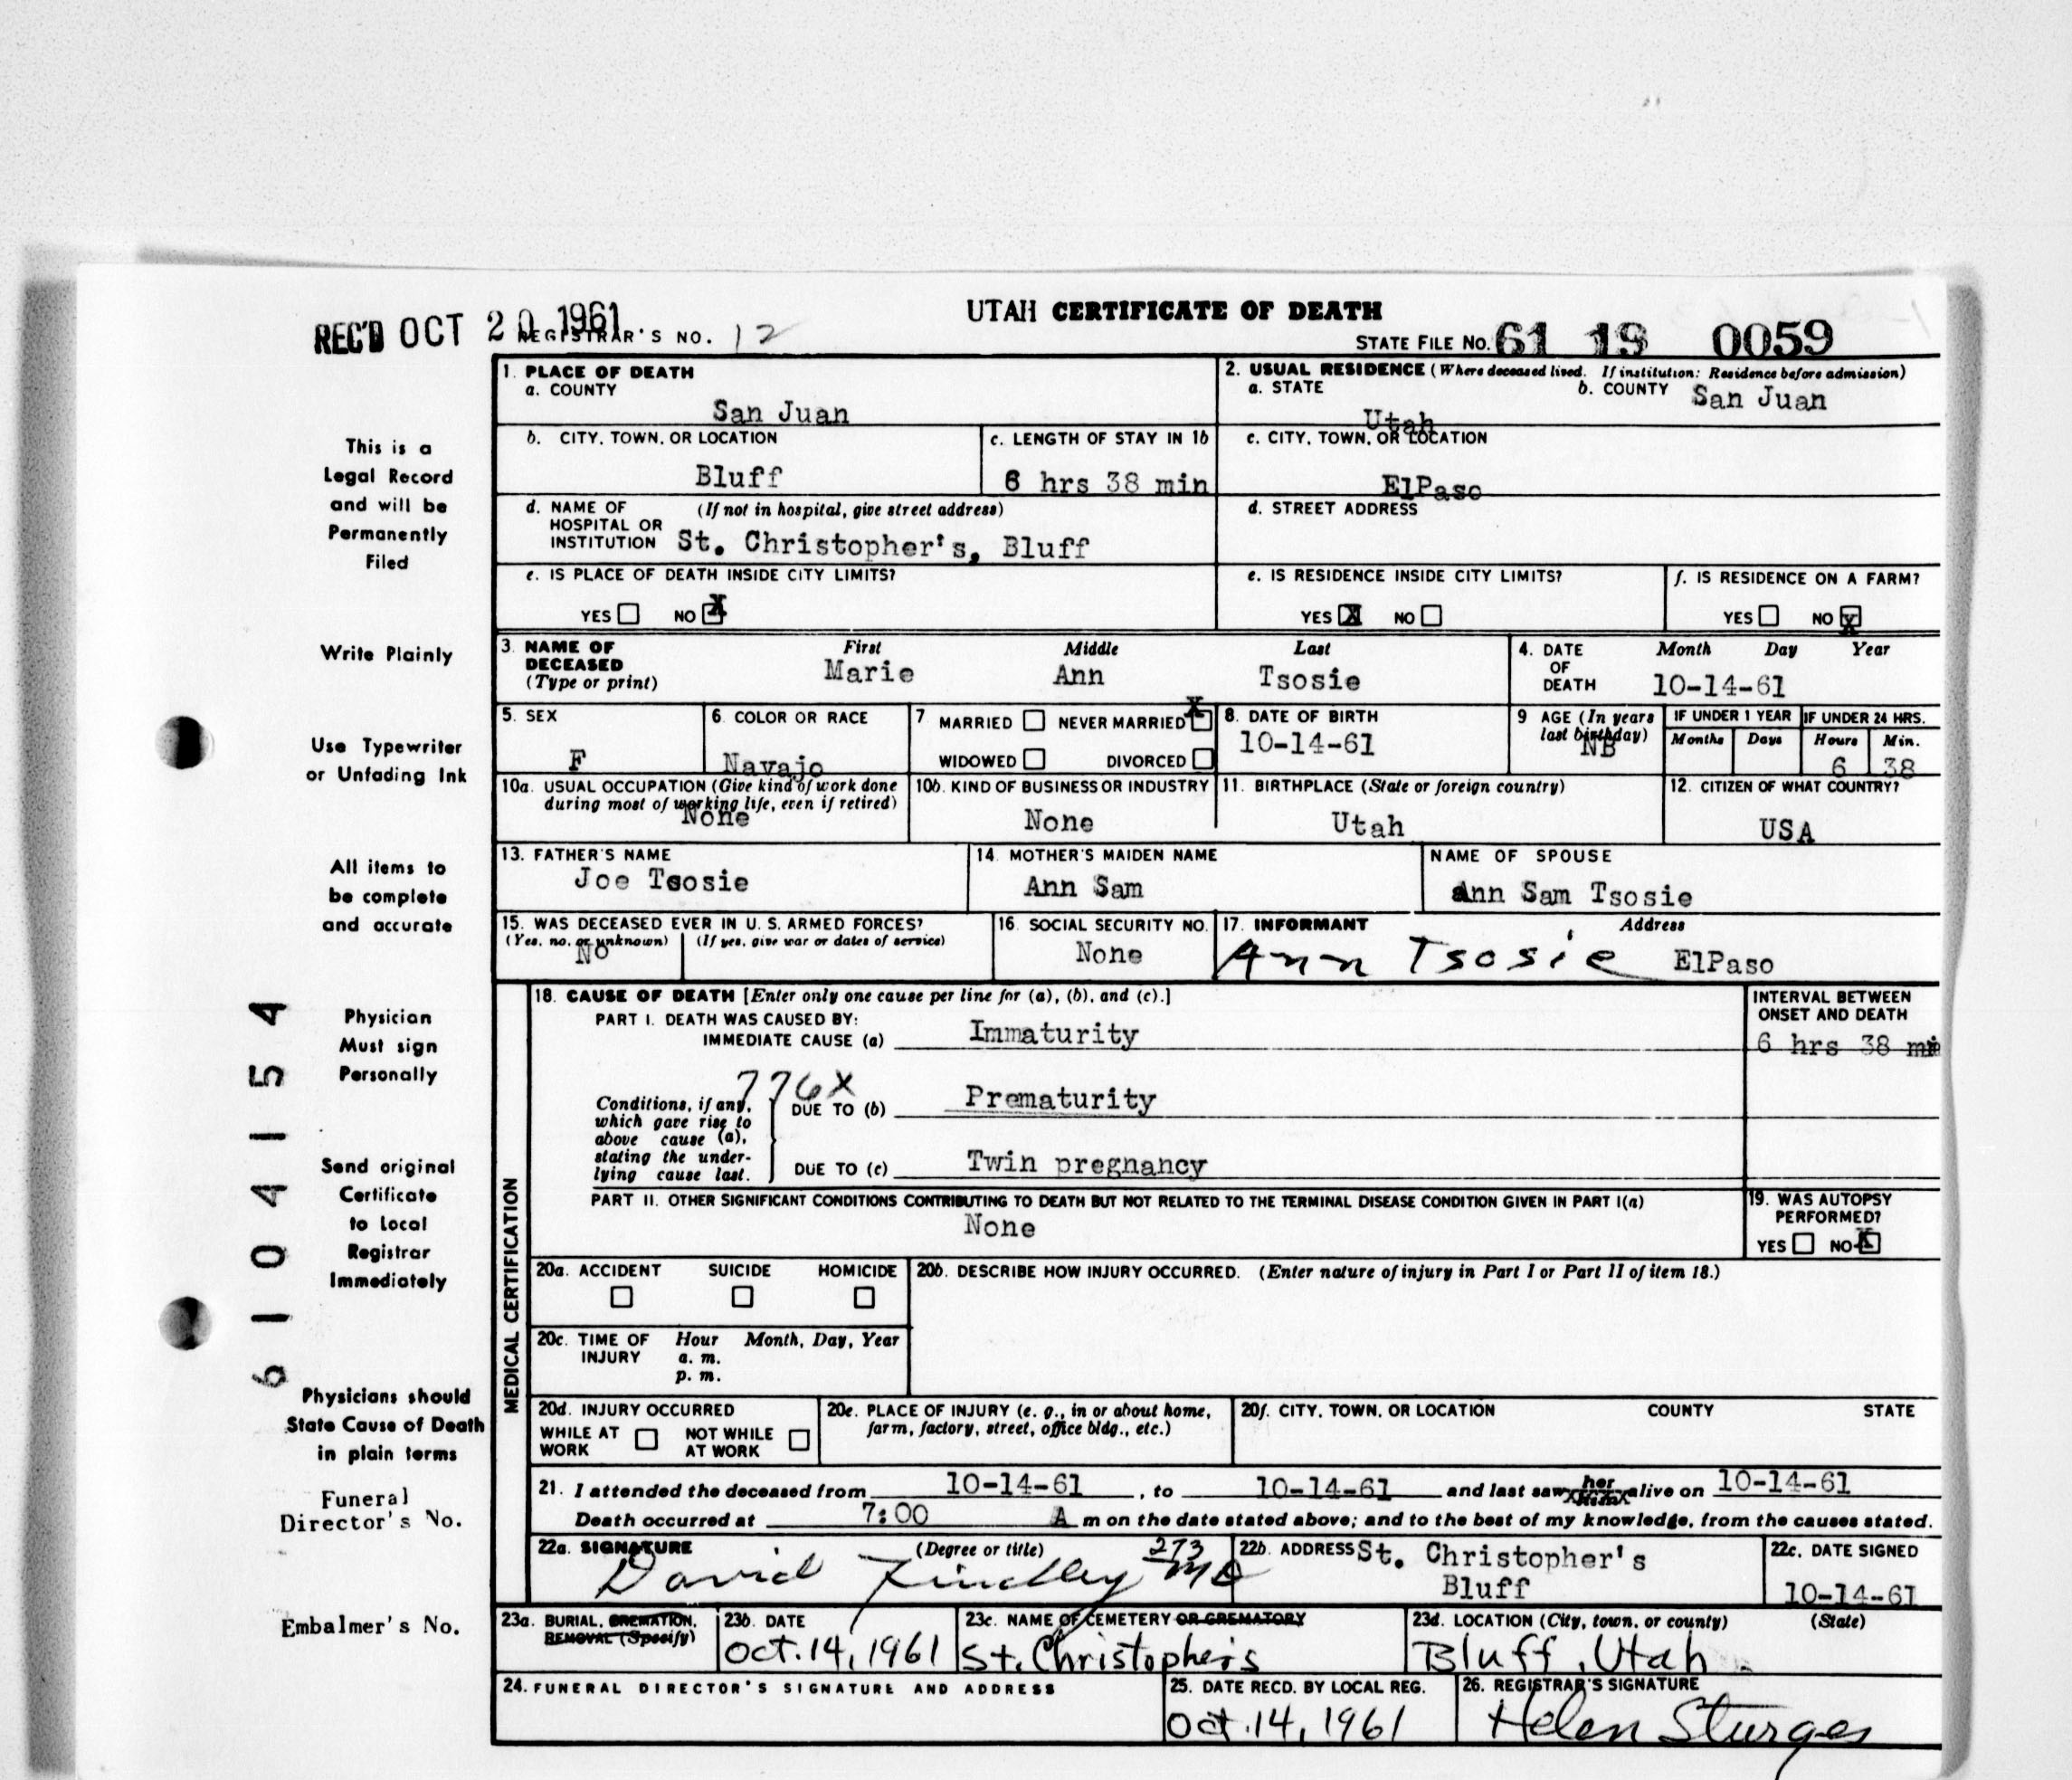 UTAH CERTIFICATE OF DEATH
REC'D OCT 20 1961
REGISTRAR'S NO. 12
STATE FILE No. 61 19 0059
1. PLACE OF DEATH
a. COUNTY
San Juan
2. USUAL RESIDENCE (Where deceased lived. If institution: Residence before admission)
a. STATE
Utah
b. COUNTY San Juan
b. CITY, TOWN, OR LOCATION
Bluff
c. LENGTH OF STAY IN 1b
6 hrs 38 min
c. CITY, TOWN, OR LOCATION
ElPaso
d. NAME OF HOSPITAL OR INSTITUTION
(If not in hospital, give street address)
St. Christopher's, Bluff
d. STREET ADDRESS
e. IS PLACE OF DEATH INSIDE CITY LIMITS?
YES NO X
e. IS RESIDENCE INSIDE CITY LIMITS?
YES X NO
f. IS RESIDENCE ON A FARM?
YES NO X
3. NAME OF DECEASED
(Type or print)
First Middle Last
Marie Ann Tsosie
4. DATE OF DEATH
Month Day Year
10-14-61
5. SEX
F
6. COLOR OR RACE
Navajo
7 MARRIED NEVER MARRIED X
WIDOWED DIVORCED
8. DATE OF BIRTH
10-14-61
9 AGE (In years last birthday)
NB
IF UNDER 1 YEAR
Months Days
IF UNDER 24 HRS.
Hours Min.
6 38
10a. USUAL OCCUPATION (Give kind of work done
during most of working life, even if retired)
None
10b. KIND OF BUSINESS OR INDUSTRY
None
11. BIRTHPLACE (State or foreign country)
Utah
12. CITIZEN OF WHAT COUNTRY?
USA
13. FATHER'S NAME
Joe Tsosie
14. MOTHER'S MAIDEN NAME
Ann Sam
NAME OF SPOUSE
Ann Sam Tsosie
15. WAS DECEASED EVER IN U. S. ARMED FORCES?
(Yes, no, or unknown) (If yes, give war or dates of service)
No
16. SOCIAL SECURITY NO.
None
17. INFORMANT Address
Ann Tsosie ElPaso
MEDICAL CERTIFICATION
18. CAUSE OF DEATH [Enter only one cause per line for (a), (b), and (c).]
PART I. DEATH WAS CAUSED BY:
IMMEDIATE CAUSE (a) Immaturity
INTERVAL BETWEEN
ONSET AND DEATH
6 hrs 38 min
776X
Conditions, if any,
which gave rise to
above cause (a),
stating the under-
lying cause last.
DUE TO (b) Prematurity
DUE TO (c) Twin pregnancy
PART II. OTHER SIGNIFICANT CONDITIONS CONTRIBUTING TO DEATH BUT NOT RELATED TO THE TERMINAL DISEASE CONDITION GIVEN IN PART I(a)
None
19. WAS AUTOPSY
PERFORMED?
YES NO X
20a. ACCIDENT SUICIDE HOMICIDE
20b. DESCRIBE HOW INJURY OCCURRED. (Enter nature of injury in Part I or Part II of item 18.)
20c. TIME OF INJURY
Hour Month, Day, Year
a. m.
p. m.
20d. INJURY OCCURRED
WHILE AT WORK NOT WHILE AT WORK
20e. PLACE OF INJURY (e. g., in or about home,
farm, factory, street, office bldg., etc.)
20f. CITY, TOWN, OR LOCATION COUNTY STATE
21. I attended the deceased from 10-14-61, to 10-14-61 and last saw her him alive on 10-14-61
Death occurred at 7:00 A m on the date stated above; and to the best of my knowledge, from the causes stated.
22a. SIGNATURE (Degree or title)
273
David Findley MD
22b. ADDRESS St. Christopher's
Bluff
22c. DATE SIGNED
10-14-61
23a. BURIAL, CREMATION,
REMOVAL (Specify)
23b. DATE
Oct. 14, 1961
23c. NAME OF CEMETERY OR CREMATORY
St. Christopher's
23d. LOCATION (City, town, or county) (State)
Bluff, Utah
24. FUNERAL DIRECTOR'S SIGNATURE AND ADDRESS
25. DATE RECD. BY LOCAL REG.
Oct. 14, 1961
26. REGISTRAR'S SIGNATURE
Helen Sturges
This is a
Legal Record
and will be
Permanently
Filed
Write Plainly
Use Typewriter
or Unfading Ink
All items to
be complete
and accurate
Physician
Must sign
Personally
Send original
Certificate
to Local
Registrar
Immediately
Physicians should
State Cause of Death
in plain terms
Funeral
Director's No.
Embalmer's No.
6104154